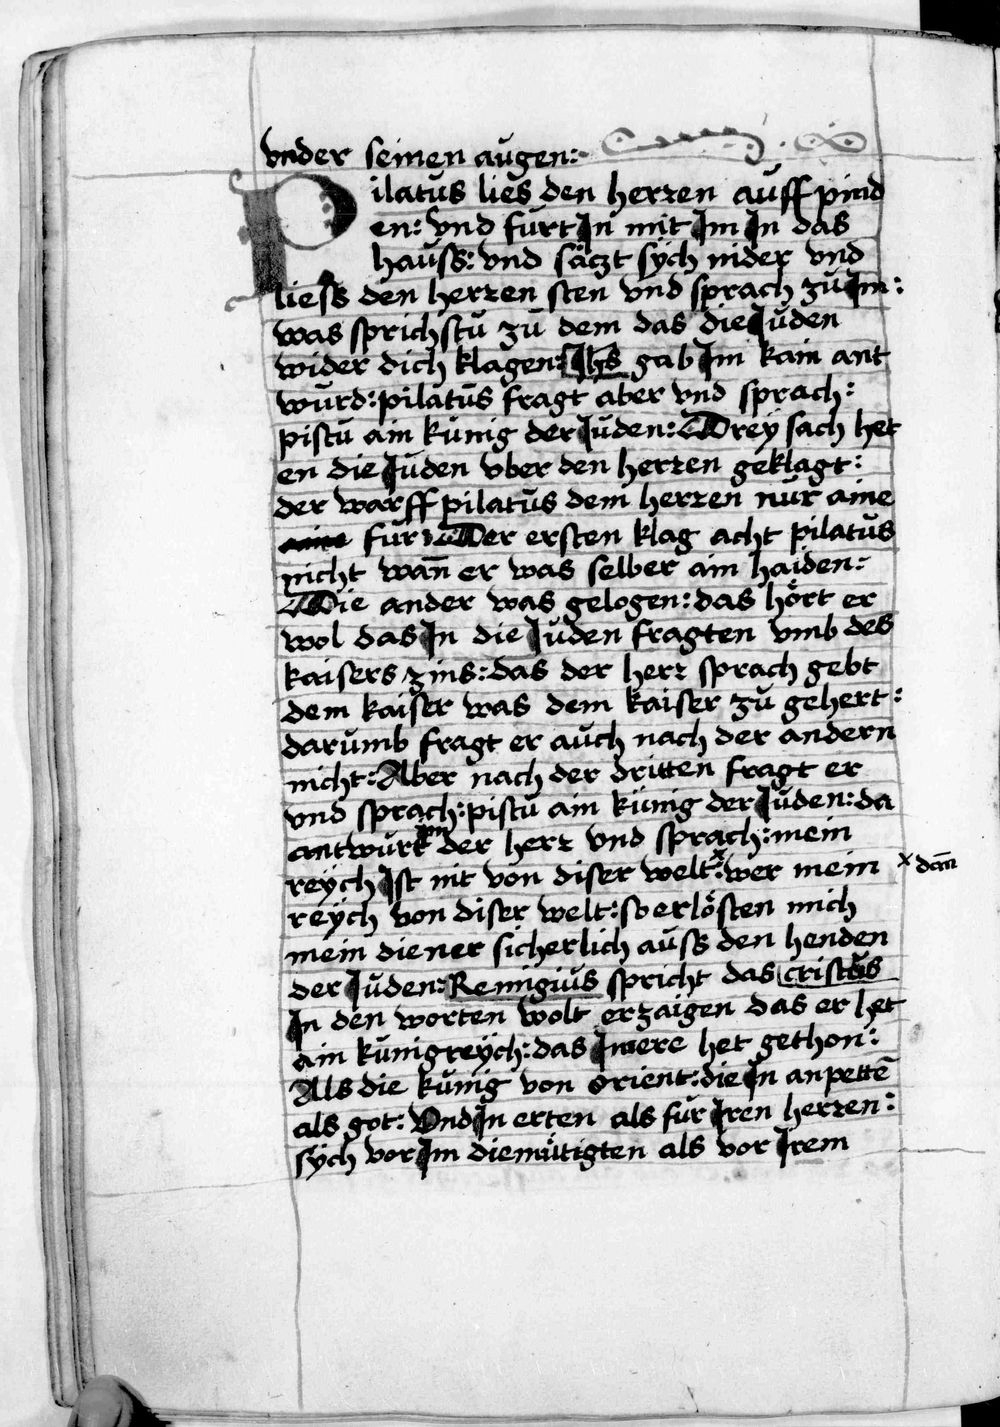 vnder seinen augen:
Pilatus lies den herren auff pind
en: vnd fürt In mit Im In das
hauss: vnd säczt sych nider vnd
liess den herren sten vnd sprach zu Im:
was sprichstu zu dem das die Juden
wider dich klagen: Ihs gab Im kain ant
wurd: pilatus fragt aber vnd sprach:
pistu ain künig der Juden: Drey sach het
en die Juden vber den herren geklagt:
der warff pilatus dem herren nur aine
für: Der ersten klag acht pilatus
nicht wan̄ er was selber ain haiden:
Die ander was gelogen: das hört er
wol das In die Juden fragten vmb des
kaisers zins: das der herr sprach gebt
dem kaiser was dem kaiser zu gehert:
darumb fragt er auch nach der andern
nicht: Aber nach der dritten fragt er
vnd sprach: pistu ain künig der Juden: da
antwurt im der herr vnd sprach: mein
reych Ist nit von diser welt: x wer mein x dan̄
reych von diser welt: so erlösten mich
mein diener sicherlich auss den henden
der Juden: Remigius spricht das cristus
In den worten wolt erzaigen das er het
ain künigreych: das Imere het gethon:
Als die künig von orient: die In anpettē
als got: Vnd In erten als für Iren herren:
sych vor Im diemütigten als vor Irem